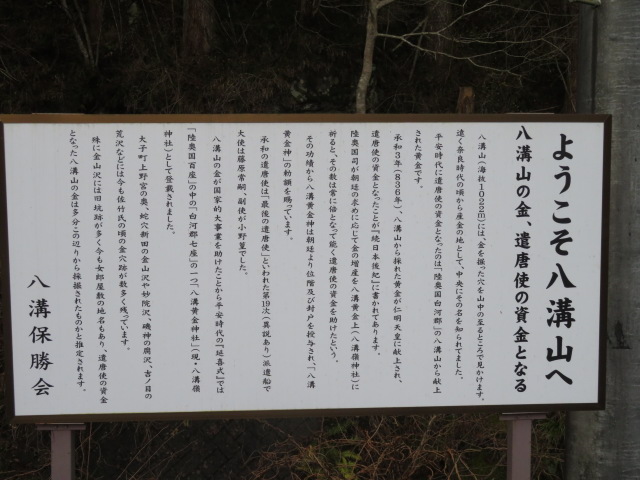 ようこそ八溝山へ
八溝山の金、遣唐使の資金となる
八溝山(海抜1022m)には、金を掘った穴を山中の至るところで見かけます。
遠く奈良時代の頃から産金の地として、中央にその名を知られてました。
平安時代に遣唐使の資金となったのは「陸奥国白河郡」の八溝山から献上
された黄金です。
承和3年(836年)、八溝山から採れた黄金が仁明天皇に献上され、
遣唐使の資金となったことが『続日本後紀』に書かれてあります。
陸奥国司が朝廷の求めに応じて金の増産を八溝黄金上(八溝嶺神社)に
祈ると、その数は常に倍となって能く遣唐使の資金を助けたという。
その功績から八溝黄金神は朝廷より位階及び封戸を授与され、「八溝
黄金神」の勅額を賜っています。
承和の遣唐使は「最後の遣唐使」といわれた第19次(異説あり)派遣船で
大使は藤原常嗣、副使が小野篁でした。
八溝山の金が国家的大事業を助けたことから平安時代の『延喜式』では
「陸奥国百座」の中の「白河郡七座」の一つ「八溝黄金神社」(現・八溝嶺
神社)として登載されました。
大子町上野宮の奥、蛇穴新田の金山沢や妙院沢、磯神の腐沢、吉ノ目の
荒沢などには今も佐竹氏の頃の金穴跡が数多く残っています。
殊に金山沢には旧坑跡が多く今も女郎屋敷の地名もあり、遣唐使の資金
となった八溝山の金は多分この辺りから採掘されたものかと推定されます。
八溝保勝会